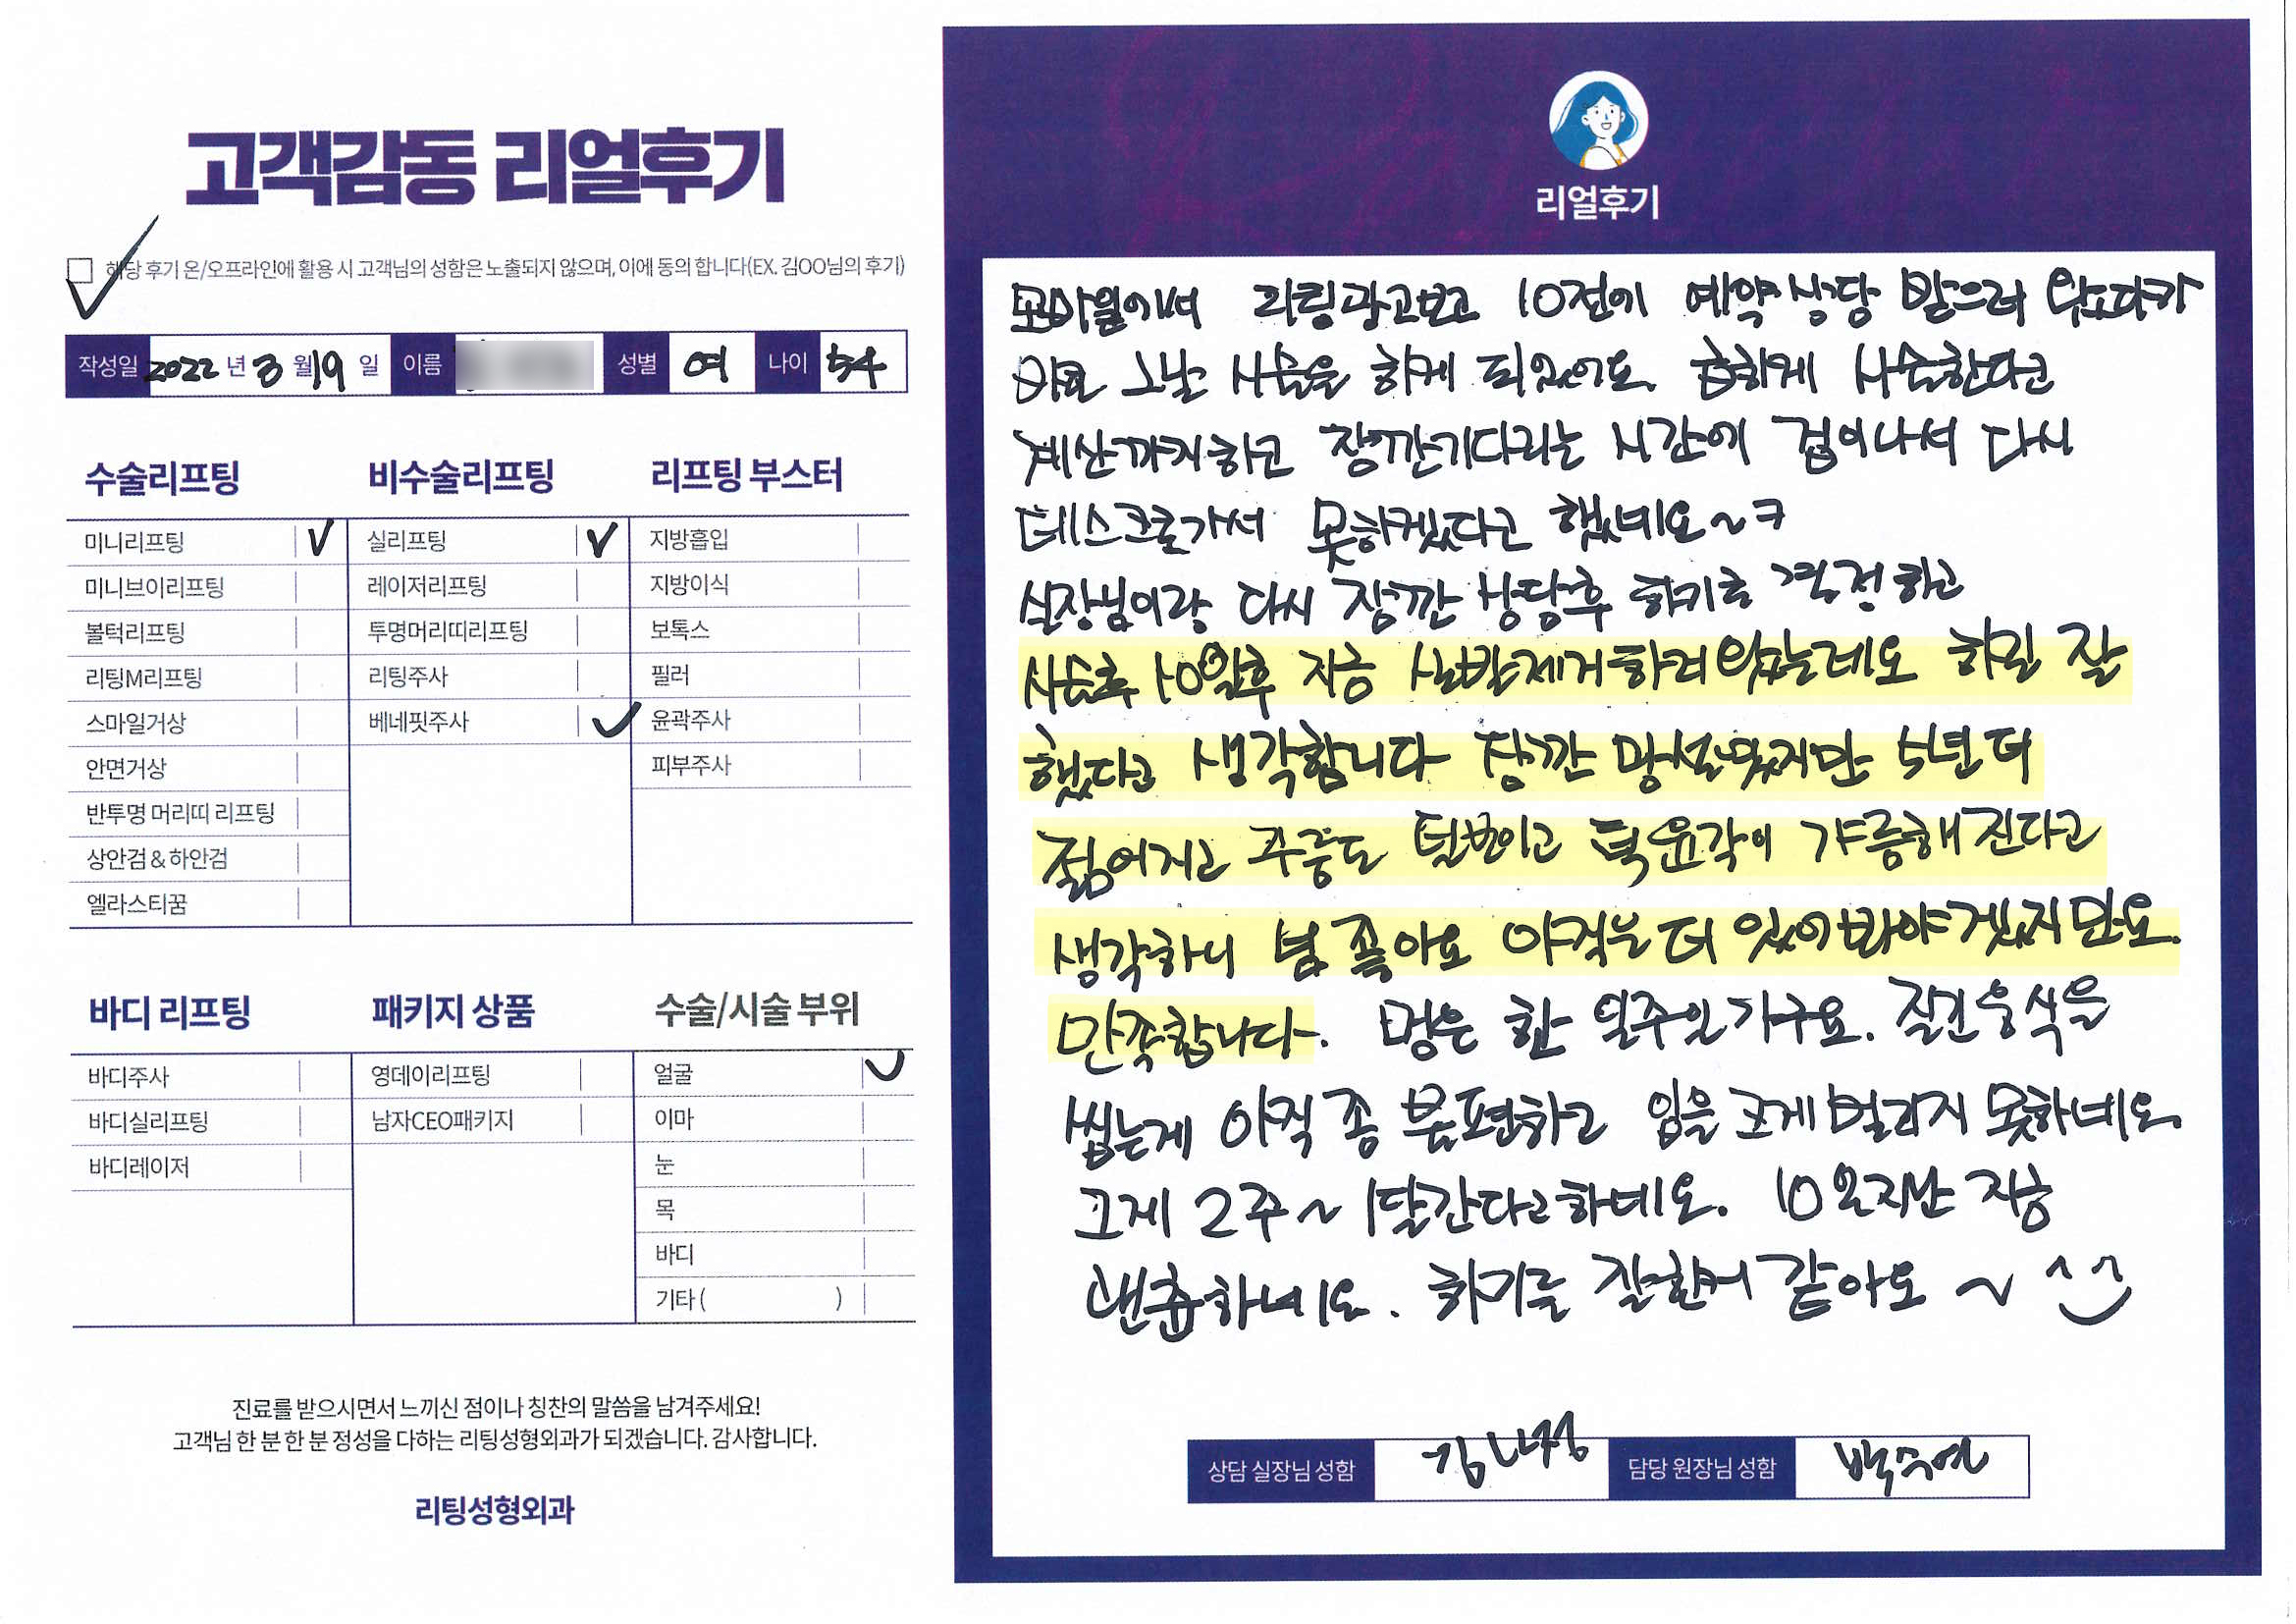 고객감동 리얼후기
해당 후기 온/오프라인에 활용 시 고객님의 성함은 노출되지 않으며, 이에 동의 합니다(EX. 김OO님의 후기)
작성일 2022 년 3 월 19 일 이름 성별 여 나이 54
수술리프팅
미니리프팅 ✓
미니브이리프팅
볼턱리프팅
리팅M리프팅
스마일거상
안면거상
반투명 머리띠 리프팅
상안검 & 하안검
엘라스티꿈
비수술리프팅
실리프팅 ✓
레이저리프팅
투명머리띠리프팅
리팅주사
베네핏주사 ✓
리프팅 부스터
지방흡입
지방이식
보톡스
필러
윤곽주사
피부주사
바디 리프팅
바디주사
바디실리프팅
바디레이저
패키지 상품
영데이리프팅
남자CEO패키지
수술/시술 부위
얼굴 ✓
이마
눈
목
바디
기타 ( )
진료를 받으시면서 느끼신 점이나 칭찬의 말씀을 남겨주세요!
고객님 한 분 한 분 정성을 다하는 리팅성형외과가 되겠습니다. 감사합니다.
리팅성형외과
리얼후기
리팅광고보고 10전에 예약상담 받으러 왔다가
그날 시술을 하게 되었어요. 급하게 시술한다고
계산까지하고 잠깐기다리는 시간에 겁이나서 다시
데스크로가서 못하겠다고 했네요~ㅋ
실장님이랑 다시 잠깐 상담후 하기로 결정하고
시술후 10일후 지금 실밥제거하러왔는데요 하길 잘
했다고 생각합니다 잠깐 망설였지만 5년 더
젊어지고 주름도 덜보이고 턱윤곽이 갸름해 진다고
생각하니 넘 좋아요 아직은 더 있어봐야겠지만요.
만족합니다. 멍은 한 일주일가구요. 질긴음식을
씹는게 아직 좀 불편하고 입을 크게 벌리지 못하네요
그게 2주~1달간다고하네요. 10일지난 지금
괜춚하네요. 하기를 잘한거 같아요 ~ ^^
상담 실장님 성함 김나정 담당 원장님 성함 백수연